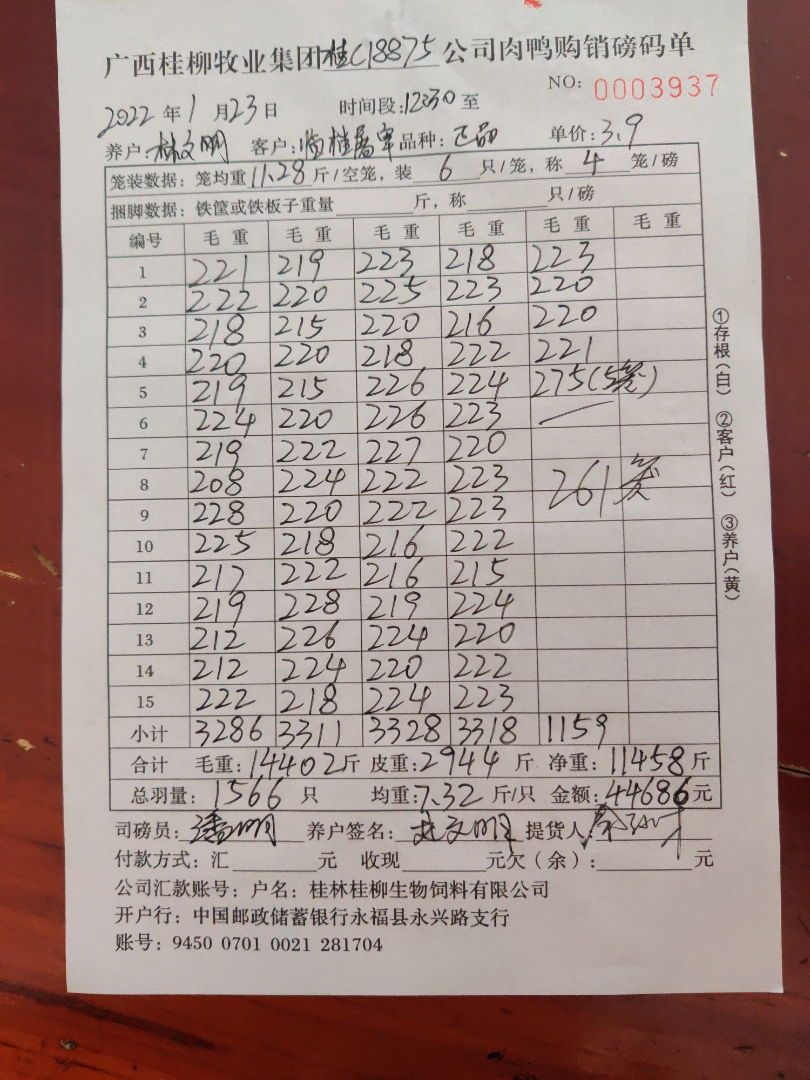 广西桂柳牧业集团桂C18875公司肉鸭购销磅码单
NO: 0003937
2022年1月23日 时间段:12:30至
养户:林文明 客户:临桂屠宰 品种:正品 单价:3.9
笼装数据:笼均重11.28斤/空笼,装6只/笼,称4笼/磅
捆脚数据:铁筐或铁板子重量 斤,称 只/磅
编号 毛重 毛重 毛重 毛重 毛重 毛重
1 221 219 223 218 223
2 222 220 225 223 220
3 218 215 220 216 220
4 220 220 218 222 221
5 219 215 226 224 275(5笼)
6 224 220 226 223 —
7 219 222 227 220
8 208 224 222 223 261笼
9 228 220 222 223
10 225 218 216 222
11 217 222 216 215
12 219 228 219 224
13 212 226 224 220
14 212 224 220 222
15 222 218 224 223
小计 3286 3311 3328 3318 1159
合计 毛重:14402斤 皮重:2944斤 净重:11458斤
总羽量:1566只 均重:7.32斤/只 金额:44686元
司磅员: 养户签名:林文明 提货人:
付款方式:汇 元 收现 元欠(余): 元
公司汇款账号:户名:桂林桂柳生物饲料有限公司
开户行:中国邮政储蓄银行永福县永兴路支行
账号:9450 0701 0021 281704
①存根(白) ②客户(红) ③养户(黄)